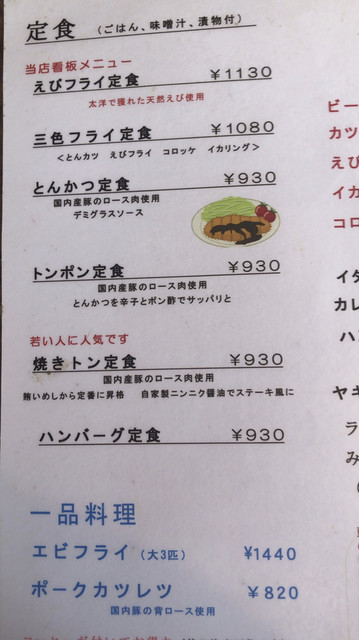 定食 (ごはん、味噌汁、漬物付)
当店看板メニュー
えびフライ定食 ￥1130
太洋で獲れた天然えび使用
三色フライ定食 ￥1080
＜とんカツ えびフライ コロッケ イカリング＞
とんかつ定食 ￥930
国内産豚のロース肉使用
デミグラスソース
トンポン定食 ￥930
国内産豚のロース肉使用
とんかつを辛子とポン酢でサッパリと
若い人に人気です
焼きトン定食 ￥930
国内産豚のロース肉使用
賄いめしから定番に昇格 自家製ニンニク醤油でステーキ風に
ハンバーグ定食 ￥930
一品料理
エビフライ (大3匹) ¥1440
ポークカツレツ ￥820
国内豚の背ロース使用
ビー
カツ
えび
イカ
コロ
イタ
カレ
ハン
ヤキ
ラ
み